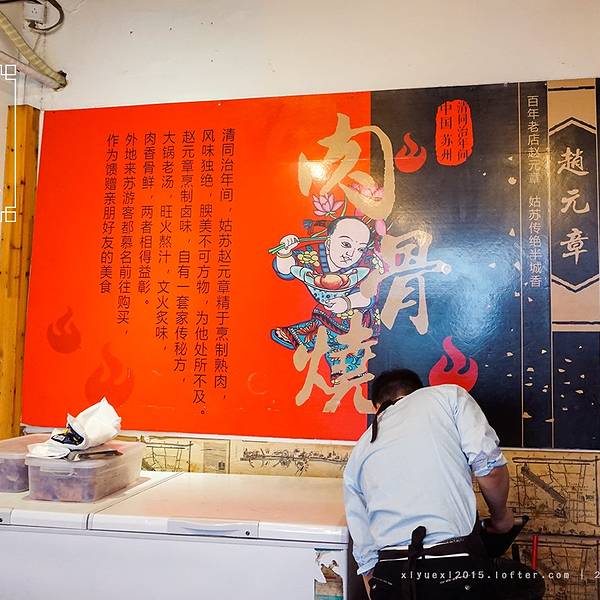 清同治年间，姑苏赵元章精于烹制熟肉，
风味独绝，腴美不可方物，为他处所不及。
赵元章烹制卤味，自有一套家传秘方，
大锅老汤，旺火熬汁，文火炙味，
肉香骨鲜，两者相得益彰。
外地来苏游客都慕名前往购买，
作为馈赠亲朋好友的美食
肉骨燒
清同治年间
中国苏州
百年老店赵元章 姑苏传绝半城香
趙元章
xiyuexi2015.lofter.com | 2